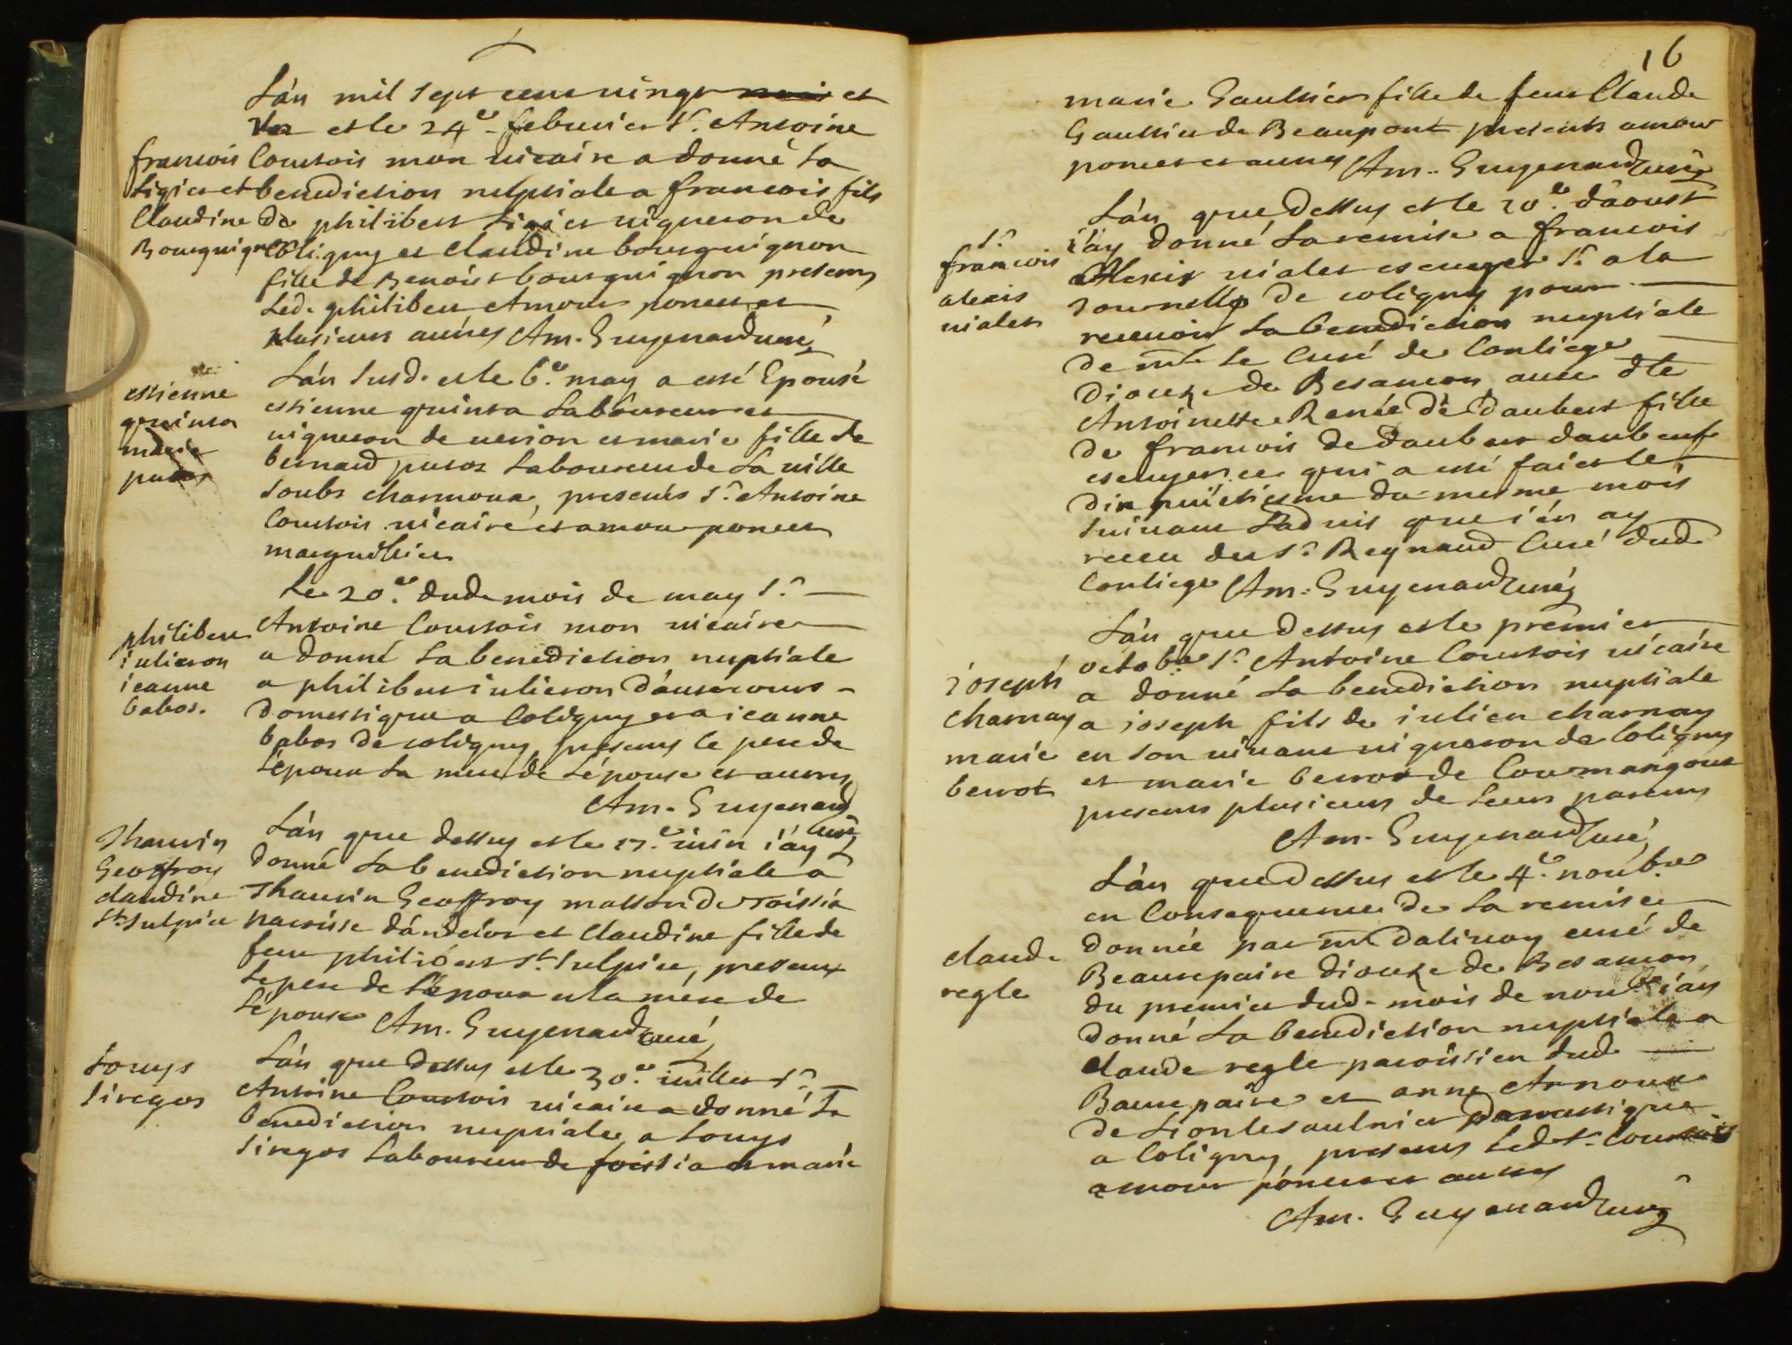 L'an mil sept cent vingt trois et
et le 24e febvrier Sr. Antoine
francois Courtois mon vicaire a donné la
Ligier et benediction nuptiale a francois fils
Claudine de philibert Ligier vigneron de
Bourguignon Coligny et Claudine bourguignon
fille de Benoist bourguignon presens
led. philibert Amour poncet et
plusieurs autres Am. Guyenard curé
L'an susd. et le 6e. may a esté Epousé
estienne quinsa Laboureur et
vigneron de verion et marie fille de
bernard putoz Laboureur de La ville
soubs charmoux, presents Sr. Antoine
Courtois vicaire et amour poncet
marguillier
estienne
quinsa
marie
putoz
Le 20e. dud. mois de may Sr.
Antoine Courtois mon vicaire
a donné la benediction nuptiale
a philibert iulieron d'
domestique a Coligny et a ieanne
babos de coligny, presens le pere de
l'époux la mere de l'épouse et autres
Am. Guyenard
curé
philibert
iulieron
ieanne
babos.
L'an que dessus et le 17e. iuin i'ay
donné la benediction nuptiale a
Thauvin Geoffroy masson de roissia
paroisse d'andelot et Claudine fille de
feu philibert St. Sulpice, presens
le pere de l'époux et la mére de
l'épouse Am. Guyenard curé
Thauvin
Geoffroy
claudine
St. Sulpice
L'an que dessus et le 30e. iuillet Sr.
Antoine Courtois vicaire a donné la
benediction nuptiale, a Louys
Siregos Laboureur de foissia et marie
Louys
Siregos
16
marie Gaultier fille de feu Claude
Gaultier de Beaupont presents amour
poncet et autres Am. Guyenard curé
L'an que dessus et le 20e. d'aoust
i'ay donné la remise a francois
Alexis vialet escuyer Sr. a la
Tournelle de coligny pour
recevoir la benediction nuptiale
de mre le Curé de Conliege
Diocese de Besancon avec dlle
Antoinette Renée de Daubert fille
de francois de Daubert daubeuf
escuyer, ce qui a esté fait le
dix huictiesme du mesme mois
suivant L'advis que i'en ay
receu du Sr. Reynaud Curé dud
Conliege Am. Guyenard curé
Sr.
francois
alexis
vialet
L'an que dessus et le premier
octobre Sr Antoine Courtois vicaire
a donné la benediction nuptiale
a ioseph fils de iulien charnay
en son vivant vigneron de Coligny
et marie berrot de Courmangoux
presens plusieurs de leurs parens
Am. Guyenard curé
ioseph
Charnay
marie
berrot
L'an que dessus et le 4e. novb.re
en Consequence de la remise
donnée par mre Dalivoy curé de
Beaurepaire diocese de Besancon
du premier dud. mois de novbre i'ay
donné la benediction nuptiale a
claude regle paroissien dud
Baurepaire et anne Arnoux
de Lionlesaulnier domestique
a Coligny presens led Sr. Courtois
amour poncet et autres
Am. Guyenard curé
claude
regle